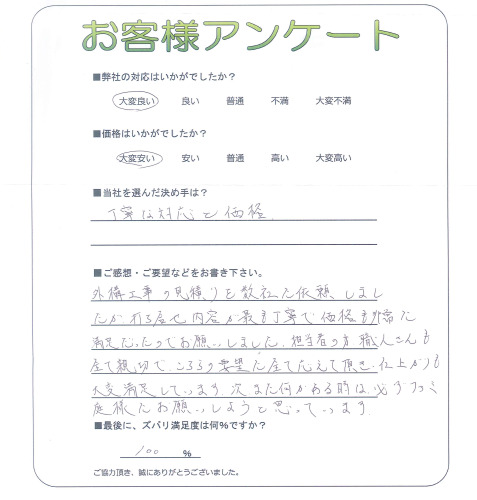 お客様アンケート
■弊社の対応はいかがでしたか?
大変良い 良い 普通 不満 大変不満
■価格はいかがでしたか?
大変安い 安い 普通 高い 大変高い
■当社を選んだ決め手は?
丁寧な対応と価格。
■ご感想・ご要望などをお書き下さい。
外構工事の見積りを数社に依頼しまし
たが 対応も内容が最も丁寧で価格も非常に
満足だったのでお願いしました。担当者の方 職人さんも
全て親切で、こちらの要望に全て応えて頂き、仕上がりも
大変満足しています。次また何かある時は必ず
庭様にお願いしようと思っています。
■最後に、ズバリ満足度は何%ですか?
100 %
ご協力頂き、誠にありがとうございました。